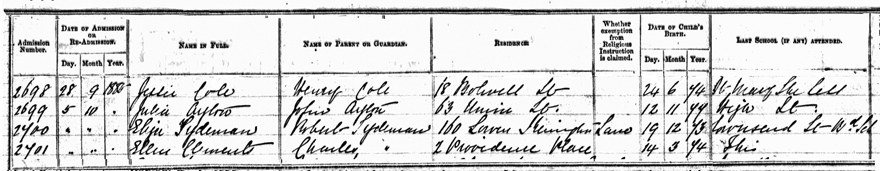 Admission Number. DATE OF ADMISSION OR RE-ADMISSION. Day. Month Year. NAME IN FULL. NAME OF PARENT OR GUARDIAN. RESIDENCE Whether exemption from Religious Instruction is claimed. DATE OF CHILD'S BIRTH. Day. Month Year. LAST SCHOOL (IF ANY) ATTENDED.
2698 28 9 1880 Cole Henry Cole 18 St 24 6 74 St Mary
2699 5 10 " Julia Ayton John Ayton 63 Union St. 12 11 74 St.
2700 " " " Eliza Tydeman Robert Tydeman 160 Lower Kennington Lane 19 12 73 Townsend St
2701 " " " Ellen Clements Charles " 2 Providence Place 14 3 74 This